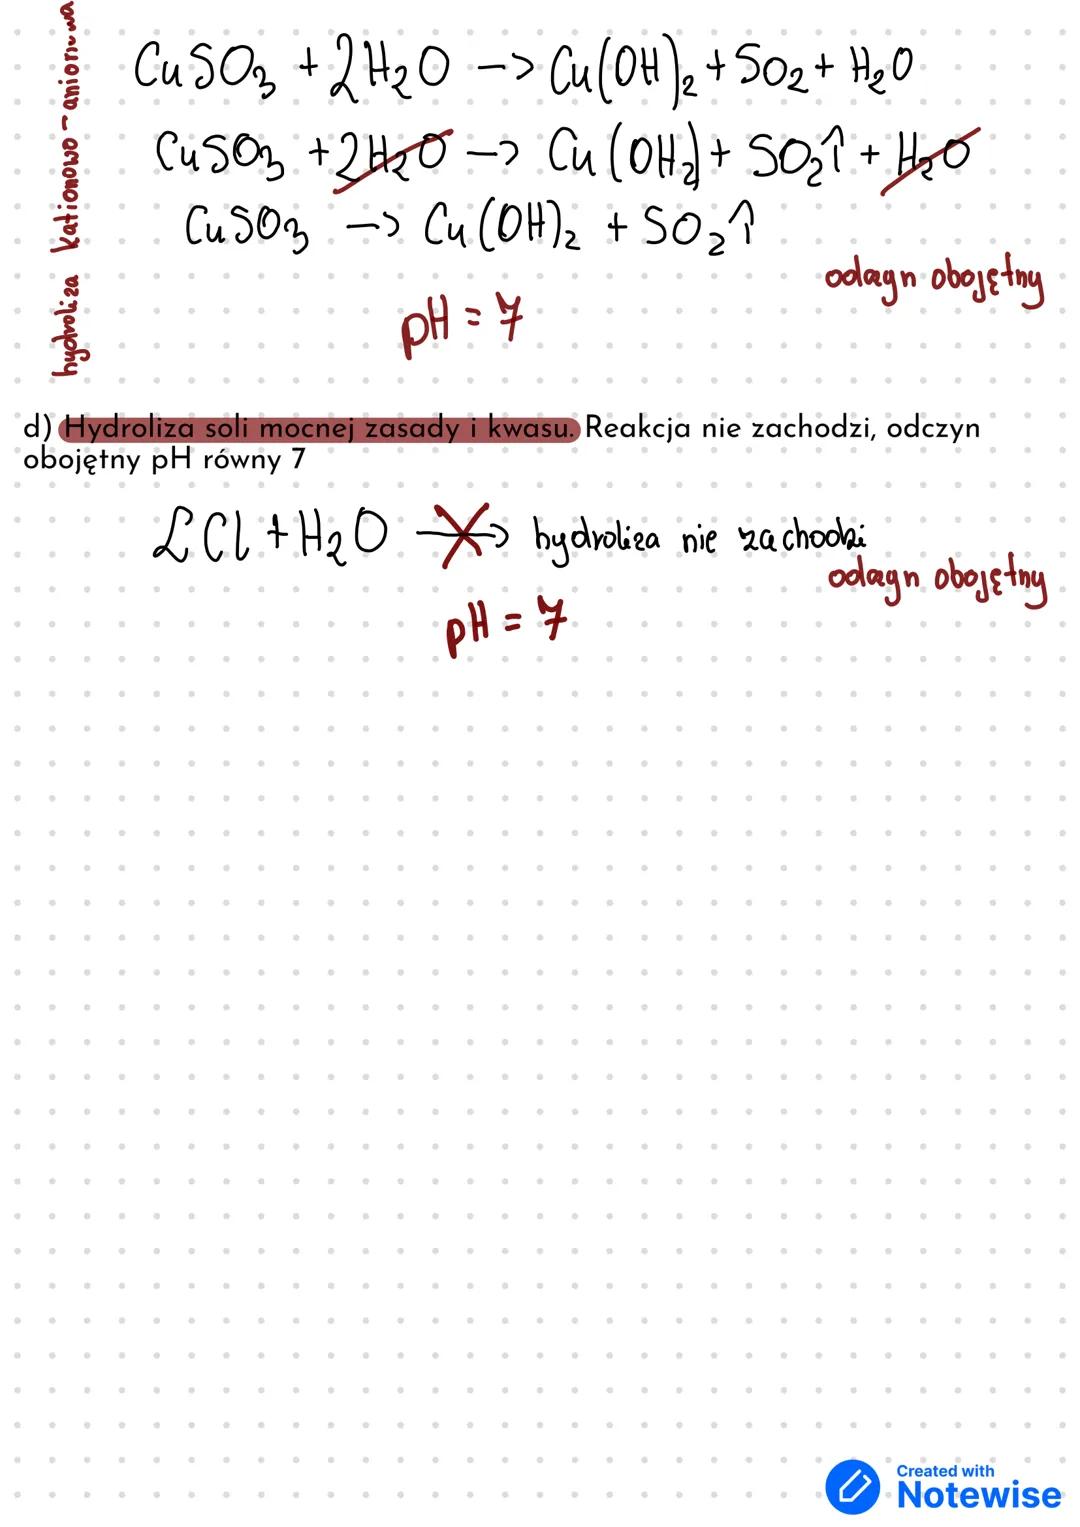 hydroliza kationowo-anionowa
CuSO₃ + 2H₂O -> Cu(OH)₂ + SO₂ + H₂O
CuSO₃ + 2H₂O -> Cu(OH)₂ + SO₂↑ + H₂O
CuSO₃ -> Cu(OH)₂ + SO₂↑
odczyn obojętny
pH = 7
d) Hydroliza soli mocnej zasady i kwasu. Reakcja nie zachodzi, odczyn
obojętny pH równy 7
LCl + H₂O -> hydroliza nie zachodzi
odczyn obojętny
pH = 7
Created with
Notewise